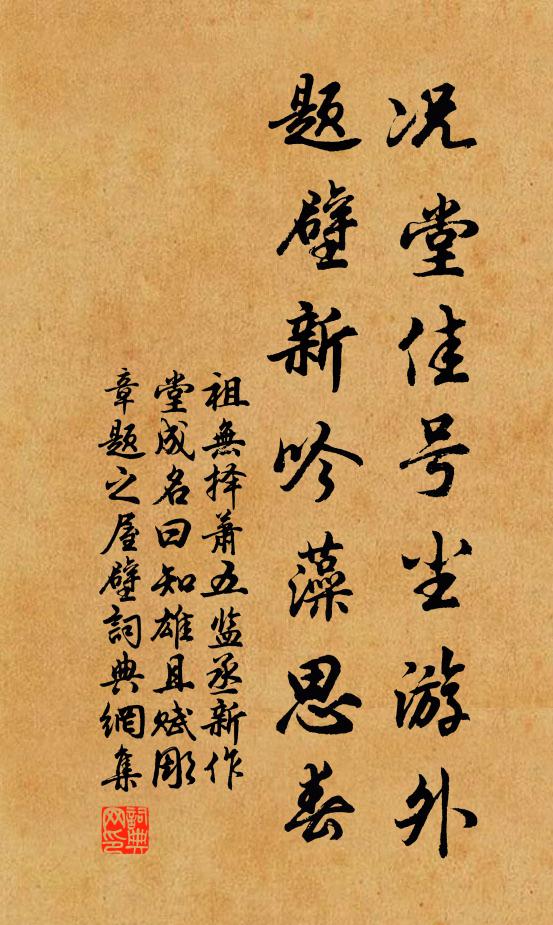 况堂佳号尘游外
题壁新吟藻思春
祖無择萧五监丞新作
堂成名曰知雄且赋彫
章题之屋壁詞典網集
詞典网印